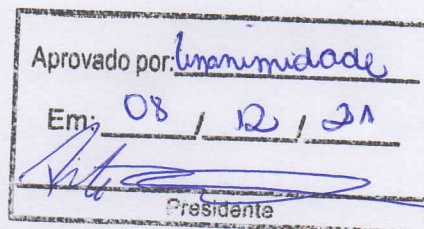 Aprovado por: Unanimidade
Em: 08 / 12 / 21
Presidente